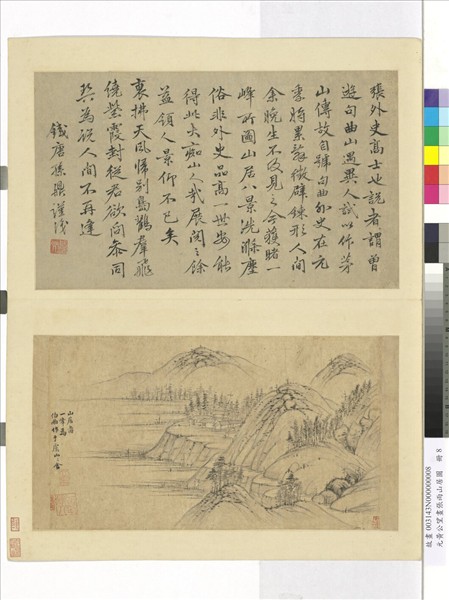 張外史高士也說者謂曾
遊句曲山遇異人試以作茅
山傳故自號句曲外史在元
季時累發徵辟鍊形人間
余晚生不及見之今獲睹一
峰所圖山居八景洗滌塵
俗非外史品高一世安能
得此大癡山人哉展閱之餘
益領人景仰不已矣
裏拂天風歸別島鸛群飛
繞霞封從君欲問參同
契為說人間不再逢
錢唐孫鼎謹識
山居圖
一峰為
伯雨作于山舍
故畫 003143N000000008
元黃公望畫張雨山居圖 冊 8